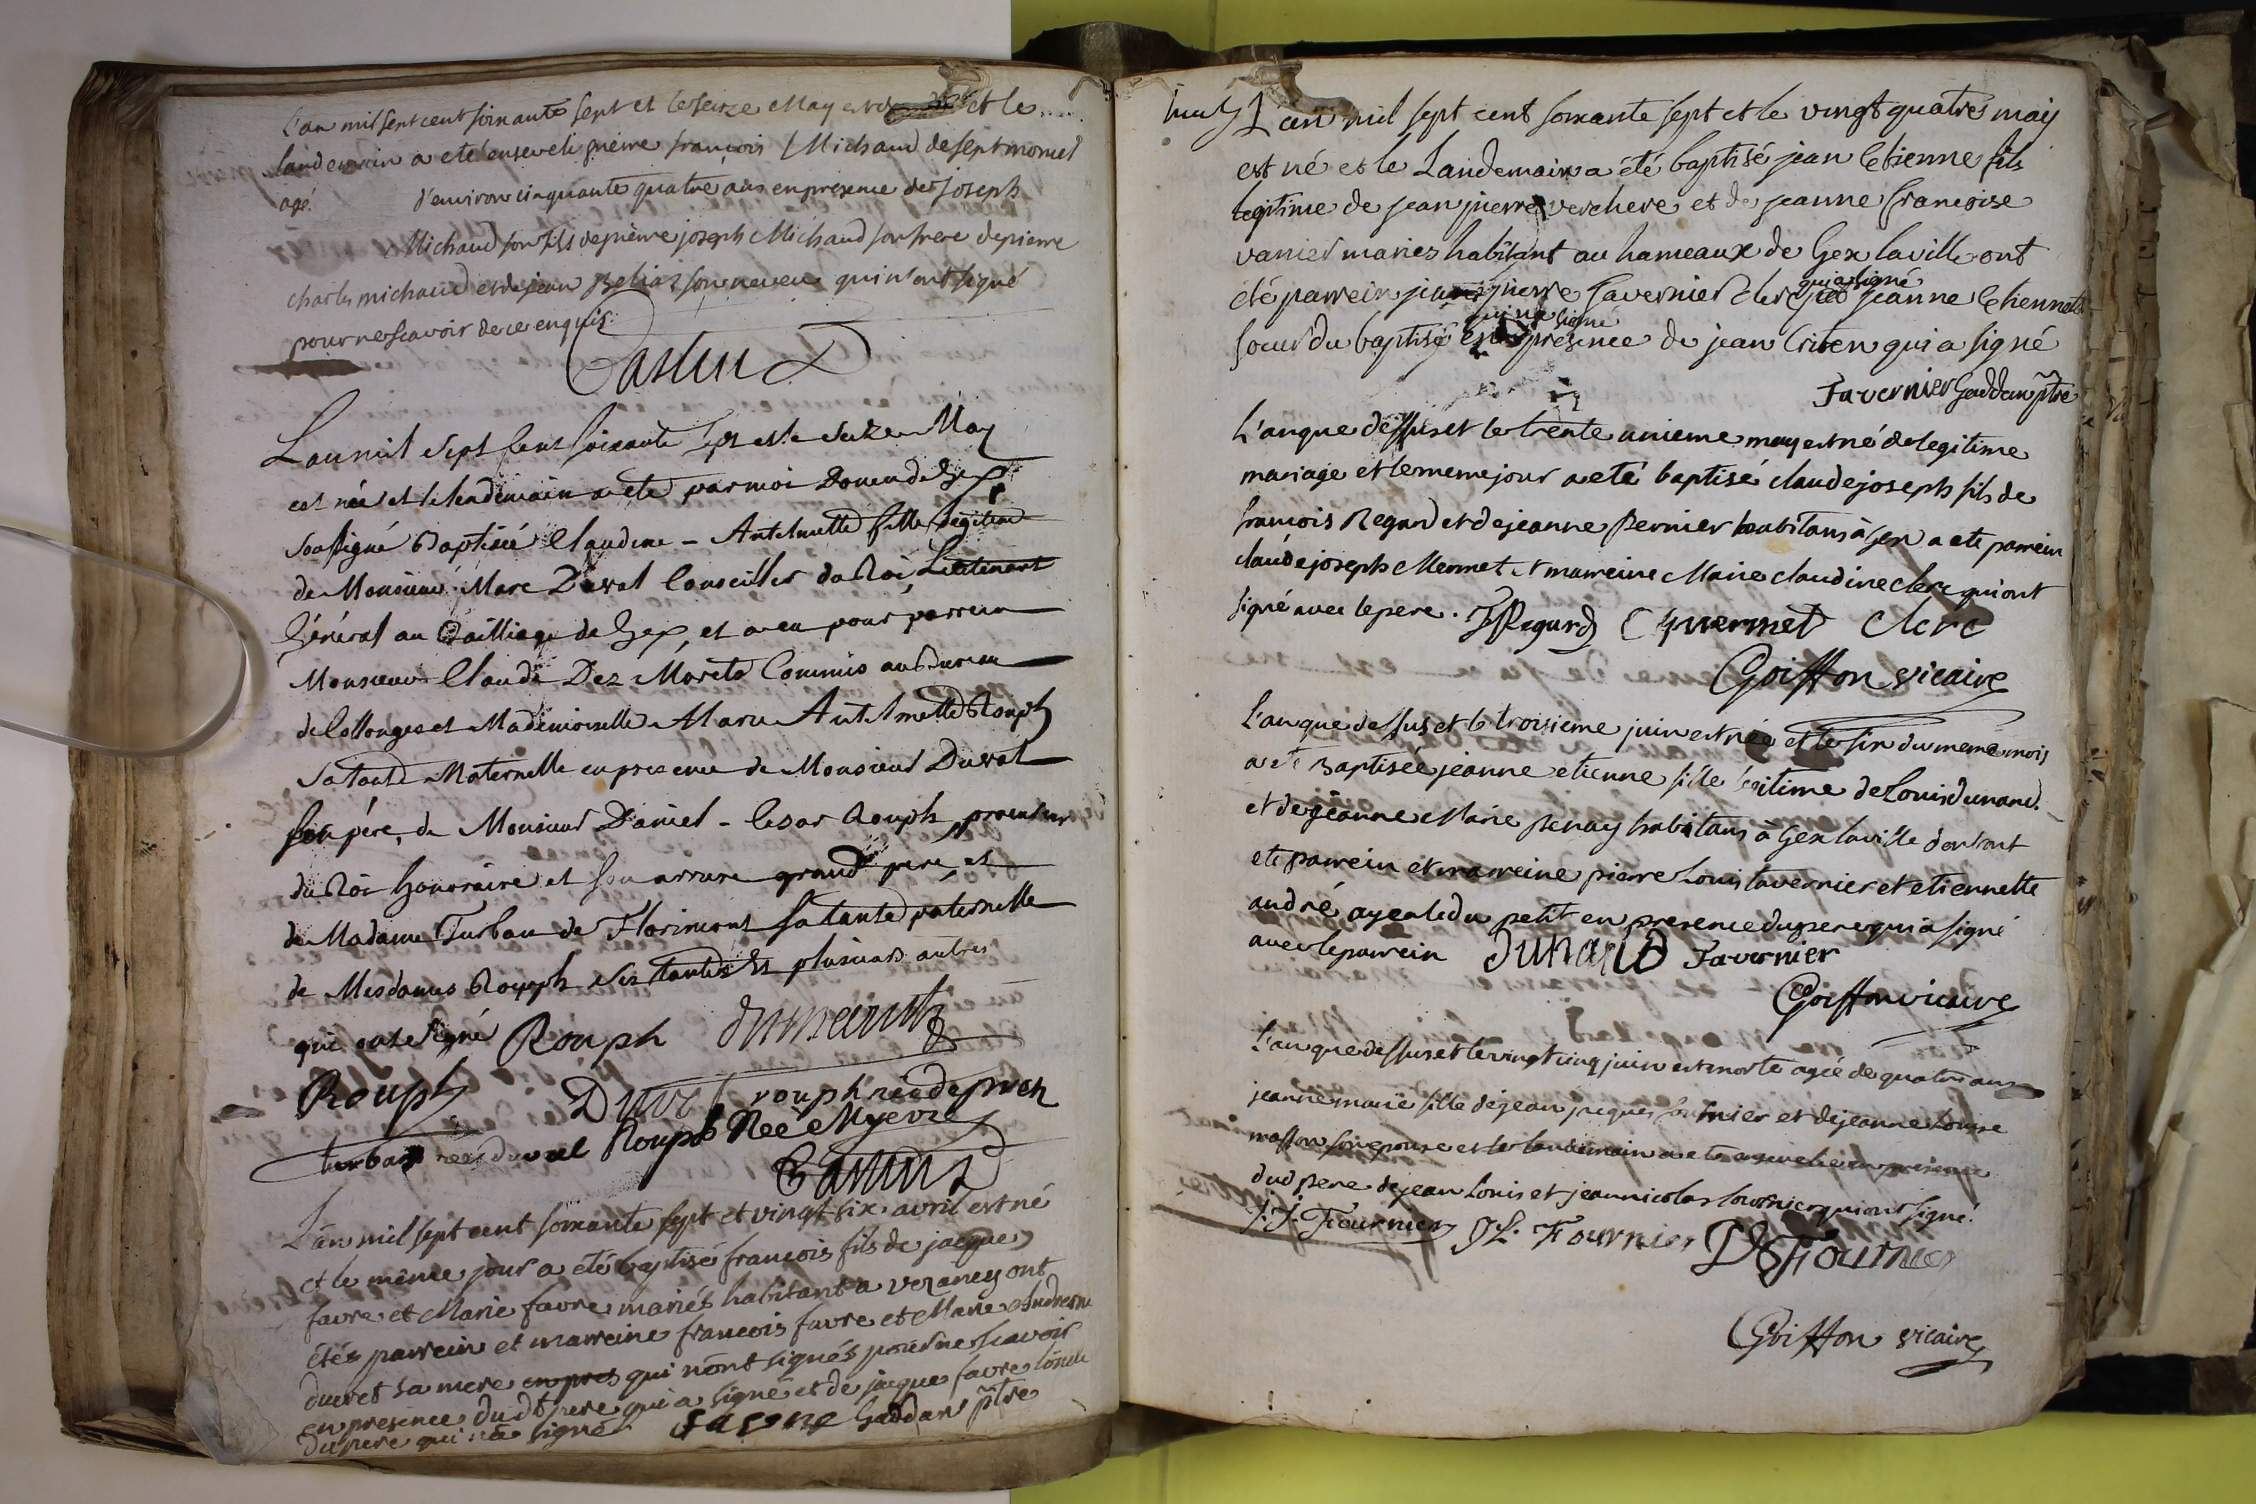 L'an mil sept cent soixante sept et le seize May est et le
landemain a eté enseveli pierre francois Michaud de septmoncel
agé d'environ cinquante quatre ans en presence de joseph
Michaud son fils de pierre joseph Michaud son frere de pierre
charles michaud et de jean son neveu qui n'ont signé
pour ne scavoir de ce enquis.
Castin
L'an mil sept cent soixante sept et le seize May
est née et le lendemain a été par moi Doyen de Gex
soussigné Baptisée Claudine - Antelmette fille legitime
de Monsieur Marc Duval Conseiller du Roi, Lieutenant
Général au Bailliage de Gex, et a eu pour parrein
Monsieur Claude Dez Morets Commis au Bureau
de Collonges et Mademoiselle Marie Antelmette Rouph
sa tante Maternelle en presence de Monsieur Duval
son pére, de Monsieur Daniel - Cesar Rouph, procureur
du Roi honoraire et son arriere grand pere, et
de Madame Turbau de Florimont sa tante paternelle
de Mesdames Rouph ses tantes et plusieurs autres
qui ont signé Rouph
Rouph Duval rouph née de prez
née duval Rouph Neè Myevre
Castin
L'an mil sept cent soixante sept et vingt six avril est né
et le même jour a été baptisé francois fils de jacques
favre et Marie favre mariés habitant a vezancy ont
étés parrein et marreine francois favre et Marie Andrerine
ducret sa mere en pres qui n'ont signés pour ne scavoir
en presence du dt pere qui a signé et de jacque favre l'oncle
du pere qui n'a signé favre Gaddan ptre
L'an mil sept cent soixante sept et le vingt quatre may
est né et le Landemain a été baptisé jean Etienne fils
legitime de jean pierre verchere et de jeanne francoise
vanier mariez habitant au hameaux de Gex la ville ont
qui a signé
été parrein pierre Tavernier clerc jeanne Etiennette
qui n'a signé
soeur du baptisé en presence de jean qui a signé
Tavernier Gaddan ptre
L'an que dessus et le trente unieme may est né de legitime
mariage et le meme jour a eté baptisé claude joseph fils de
francois Regard et de jeanne pernier habitans à Gex a eté parrein
claude joseph Mermet et marreine Marie claudine clerc qui ont
signé avec le pere. Regard Cj mermet Clerc
Goiffon vicaire
L'an que dessus et le troisieme juin est née et le six du meme mois
a eté Baptisée jeanne etienne fille legitime de Louis dunand
et de jeanne Marie penay habitans à Gex la ville dont ont
eté parrein et marreine pierre Louis tavernier et etiennette
andré ayeule du petit en presence du pere qui a signé
avec le parrein Dunand Tavernier
Goiffon vicaire
L'an que dessus et le vingt cinq juin est morte agée de quatre ans
jeanne marie fille de jean jacques fournier et de jeanne Louise
masson son epouse et le landemain a eté ensevelie en presence
dud pere de jean Louis et jean nicolas fournier qui ont signé.
J. J. Fournier JL. Fournier Fournier
Goiffon vicaire